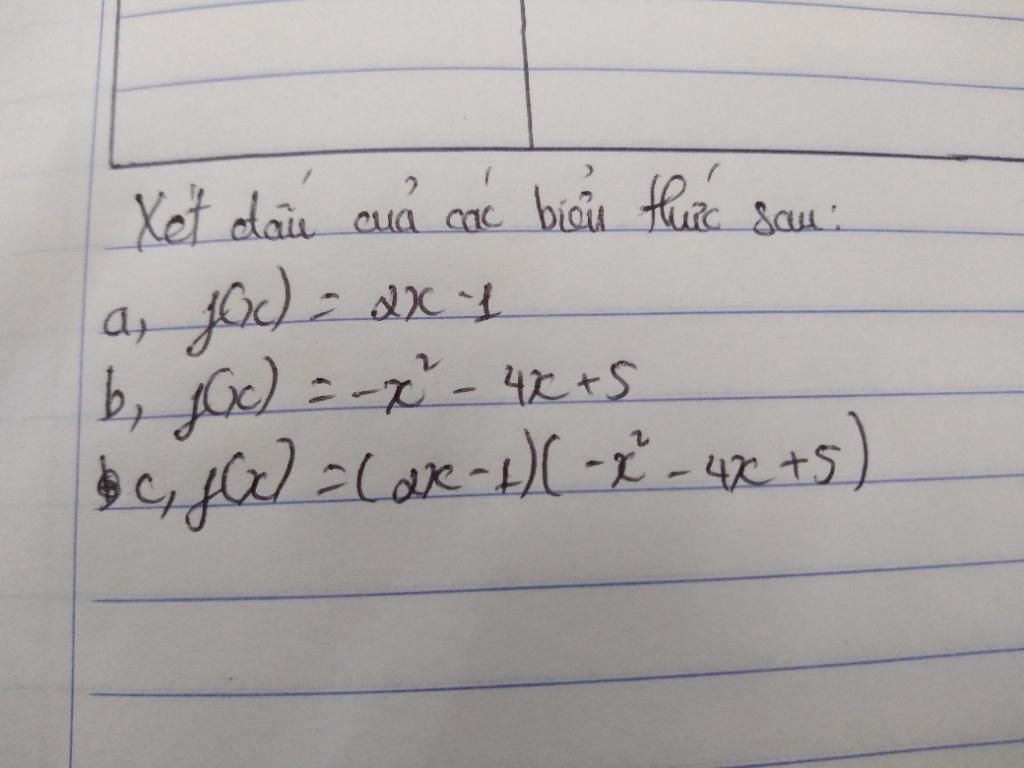 Xét dấu của các biểu thức sau:
a, f(x) = 2x - 1
b, f(x) = -x² - 4x + 5
c, f(x) = (2x - 1)(-x² - 4x + 5)